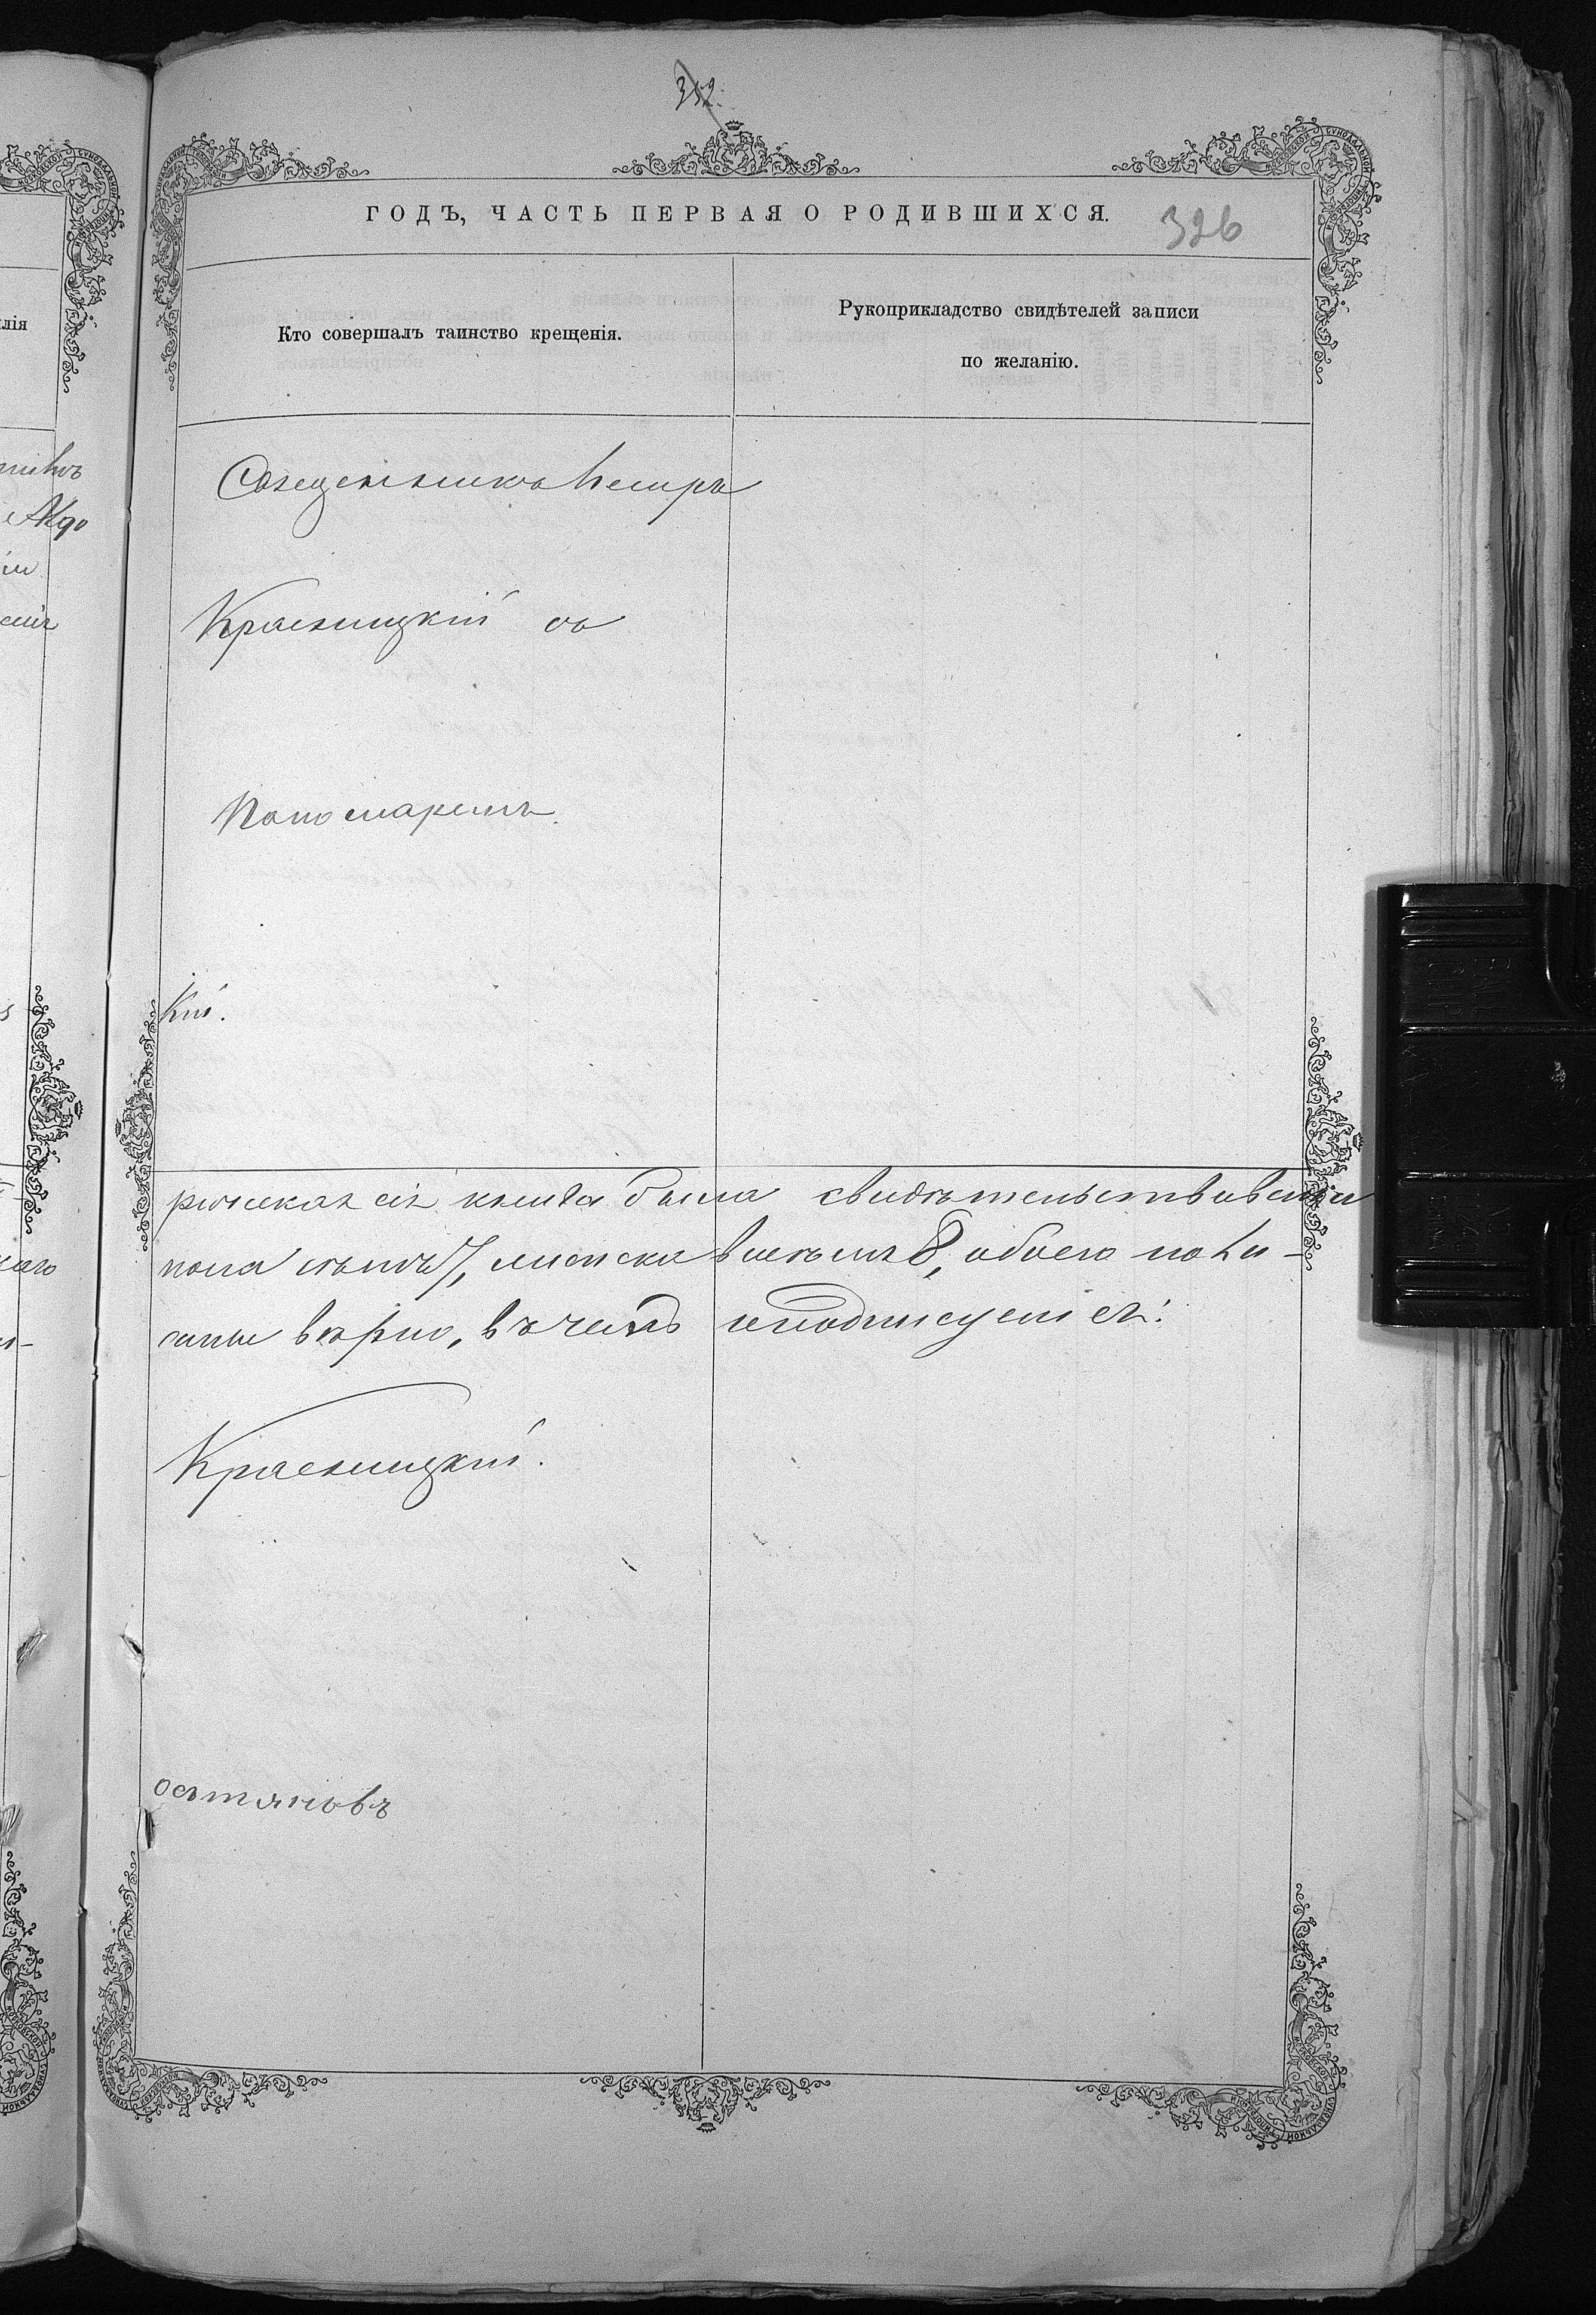 352.
ГОДЪ, ЧАСТЬ ПЕРВАЯ О РОДИВШИХСЯ.
326
Кто совершалъ таинство крещенія.
Рукоприкладство свидѣтелей записи
по желанію.
Священникъ Петръ
Красницкій съ
Пономаремъ.
кій.
рическая сія книга была свидѣтельствована
пола семь 7, женска восемь 8, обоего по пи-
саны вѣрно, въ чемъ и подписуемся:
Красницкій.
остяновъ
лія